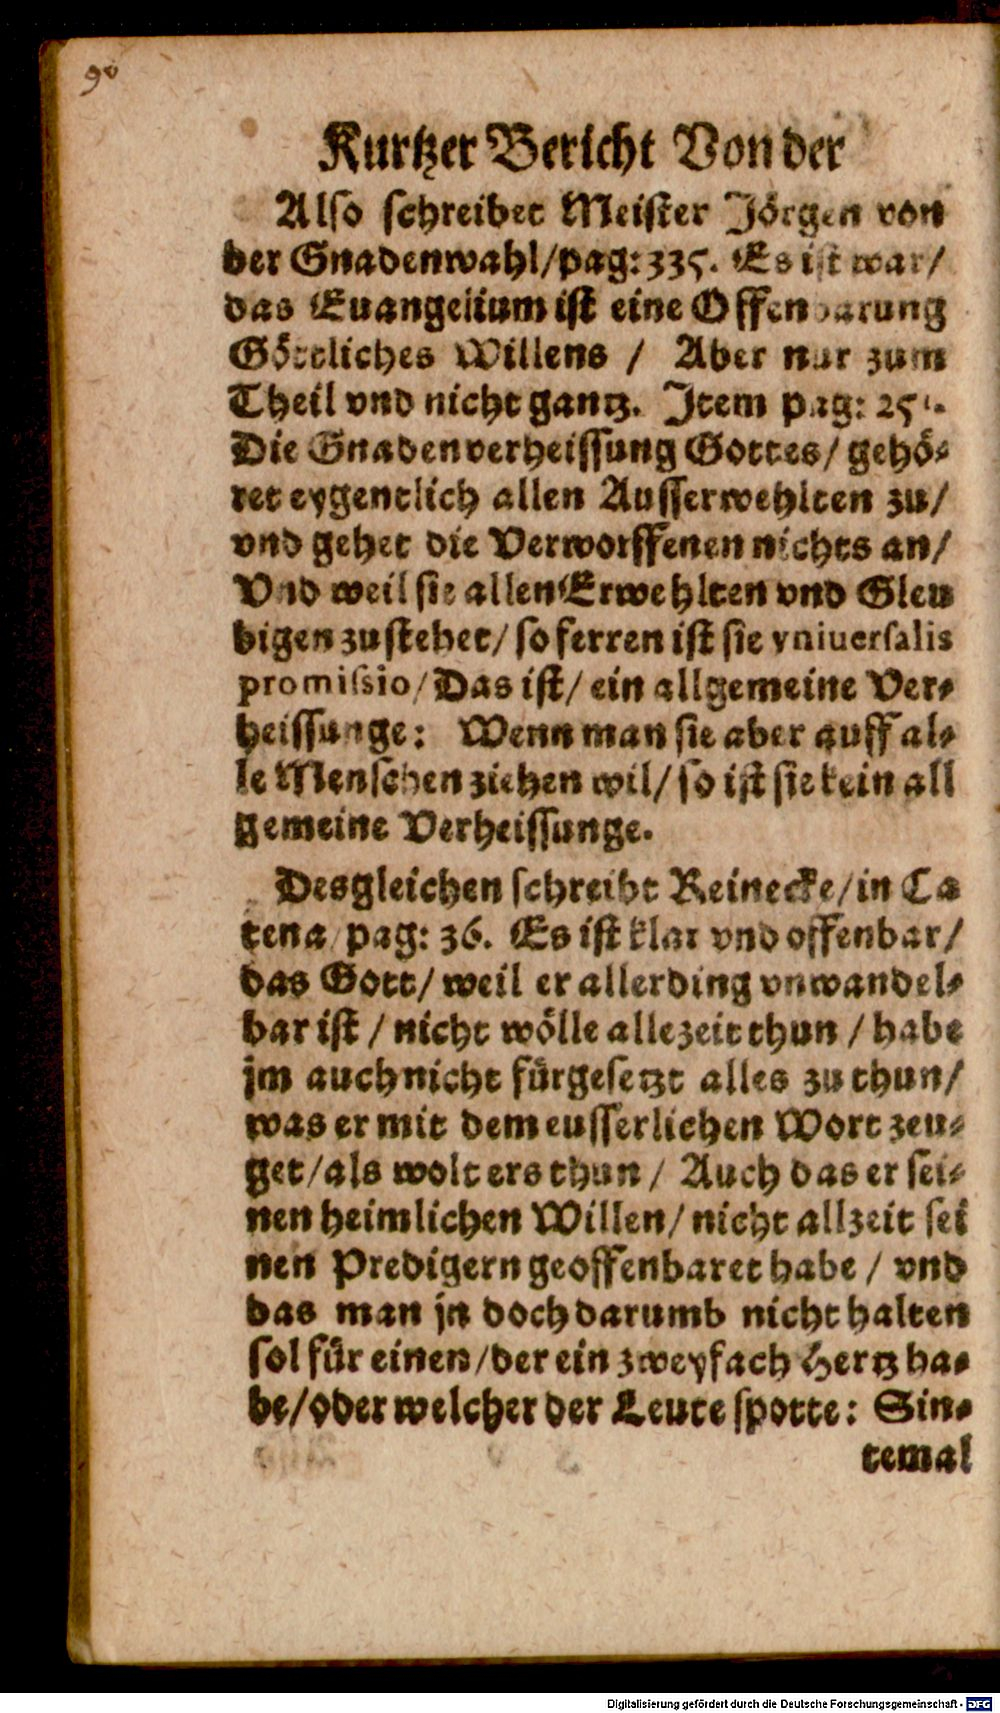 90
Kurtzer Bericht Von der
Also schreibet Meister Jörgen von
der Gnadenwahl/pag: 335. Es ist war/
das Euangelium ist eine Offenbarung
Göttliches Willens / Aber nur zum
Theil vnd nicht gantz. Item pag:
Die Gnadenverheissung Gottes/ gehö-
ret eygentlich allen Ausserwehlten zu/
vnd gehet die Verworffenen nichts an/
Vnd weil sie allen Erwehlten vnd Gleu
bigen zustehet/ so ferren ist sie vniuersalis
promissio/ Das ist/ ein allgemeine Ver-
heissunge: Wenn man sie aber auff al-
le Menschen ziehen wil/ so ist sie kein all
gemeine Verheissunge.
Desgleichen schreibt Reinecke/ in Ca
tena/ pag: 36. Es ist klar vnd offenbar/
das Gott/ weil er allerding vnwandel-
bar ist / nicht wölle allezeit thun / habe
jm auch nicht fürgesetzt alles zu thun/
was er mit dem eusserlichen Wort zeu-
get/ als wolt ers thun / Auch das er sei-
nen heimlichen Willen/ nicht allzeit sei
nen Predigern geoffenbaret habe / vnd
das man jn doch darumb nicht halten
sol für einen/ der ein zweyfach Hertz ha-
be/ oder welcher der Leute spotte: Sin-
temal
Digitalisierung gefördert durch die Deutsche Forschungsgemeinschaft - DFG